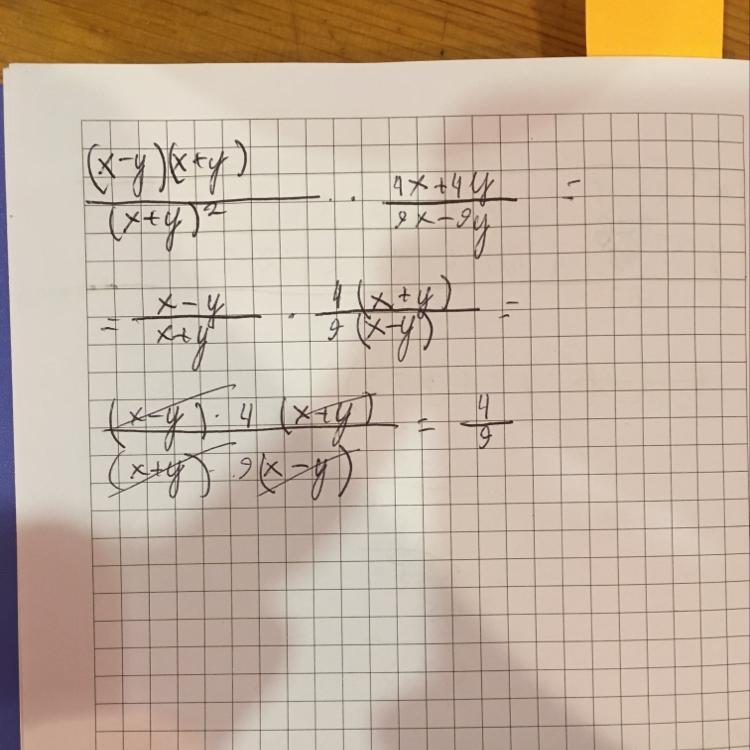 (x-y)(x+y)/(x+y)² · (4x+4y)/(9x-9y) =
= (x-y)/(x+y) · 4(x+y)/9(x-y) =
(x-y)·4(x+y)/(x+y)·9(x-y) = 4/9